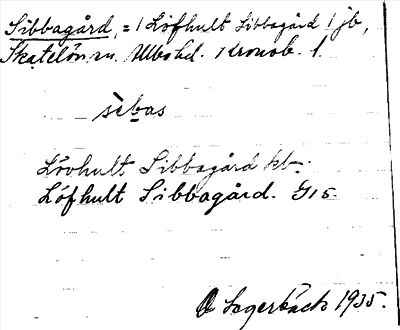 Sibbagård, = 1 Löfhult Sibbagård 1 jb,
Skatelövs sn. Allbo hd. Kronob. l.
sèbas
Lövhult Sibbagård kb.
Löfhult Sibbagård. G 15.
O Lagerbäck 1935.